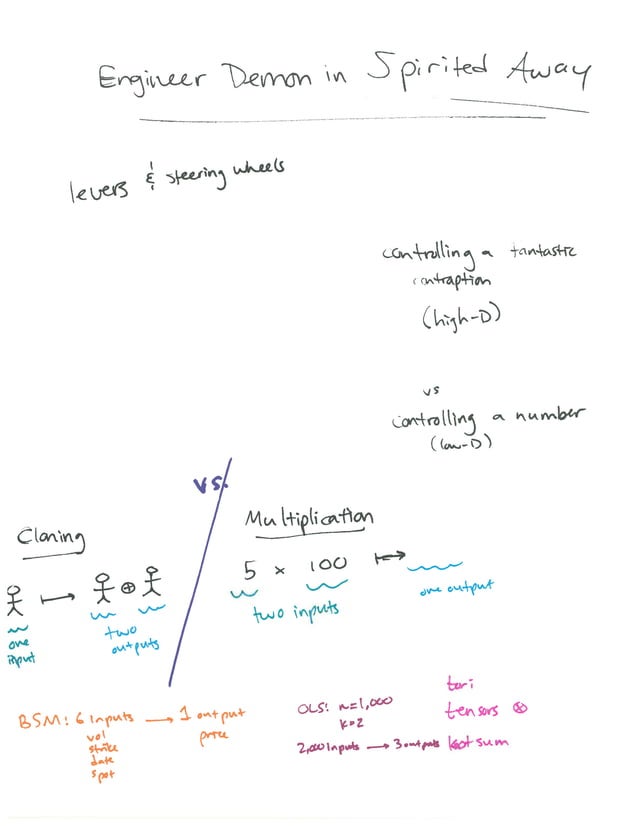 Engineer Demon in Spirited Away
levers & steering wheels
controlling a fantastic
contraption
(high-D)
vs
controlling a number
(low-D)
vs.
Cloning
⟼ ⊕
one
input
two
outputs
Multiplication
5 × 100 ⟼
two inputs
one output
BSM: 6 inputs → 1 output
vol
strike
date
spot
price
OLS: n=1,000
k=2
2,000 inputs → 3 outputs
tori
tensors ⊗
knot sum